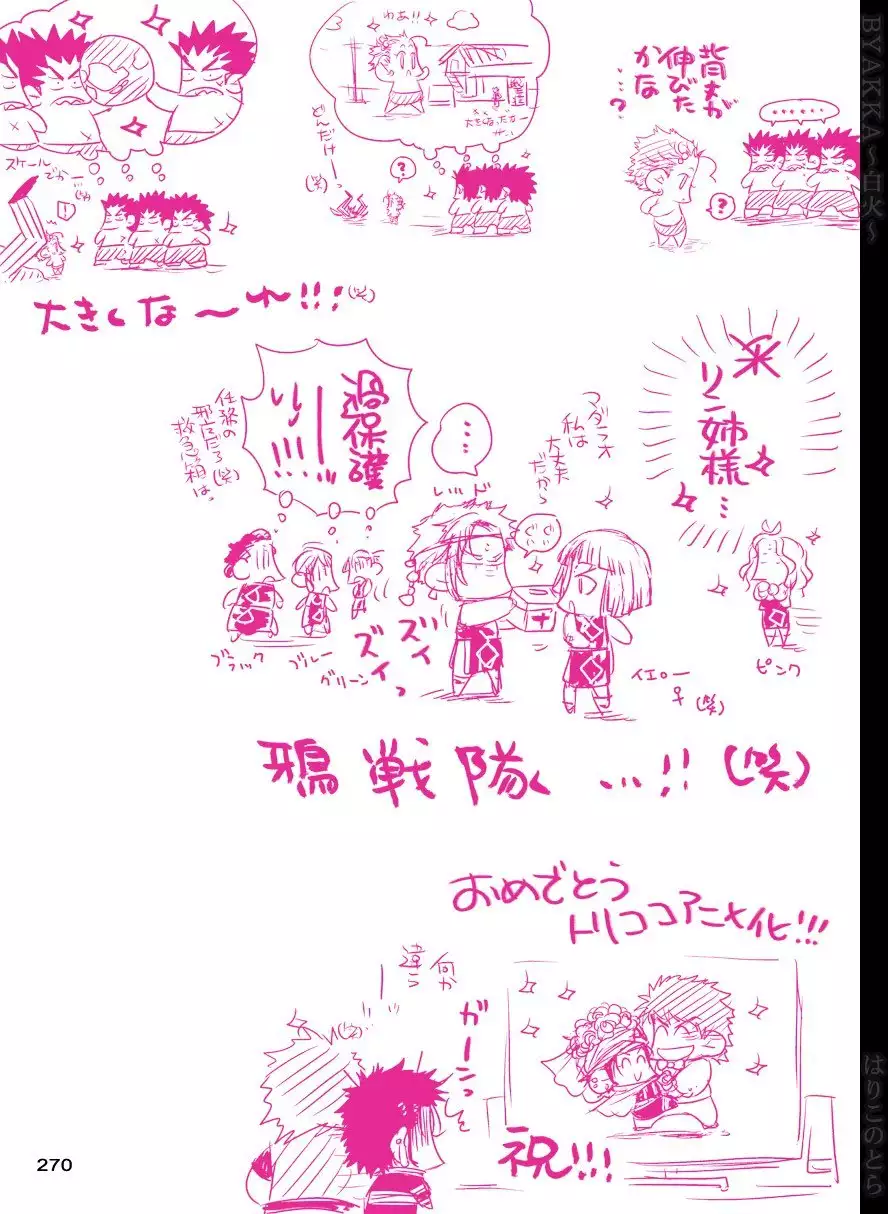 背丈が
伸びた
かな
…?
……
?
わあ!!
大きな
どんだけーっ
(笑)
?
スケール
でかー
!
大きくな〜れ!!!(笑)
米
リン姉様…
マダラオ
私は
大丈夫
だから
…
過保護
ーッ
!!!!
任務の
救急箱は。
レッド
ぐいぐい
ズイ
ズイっ
ブラック
ブルー
グリーン
イエロー
♀
(笑)
ピンク
鴉戦隊…!!(笑)
おめでとう
トリココアニメ化!!!
何か
違う
(笑)
ガーンっ
祝!!!
270
BYAKKA〜白火〜
はりこのとら